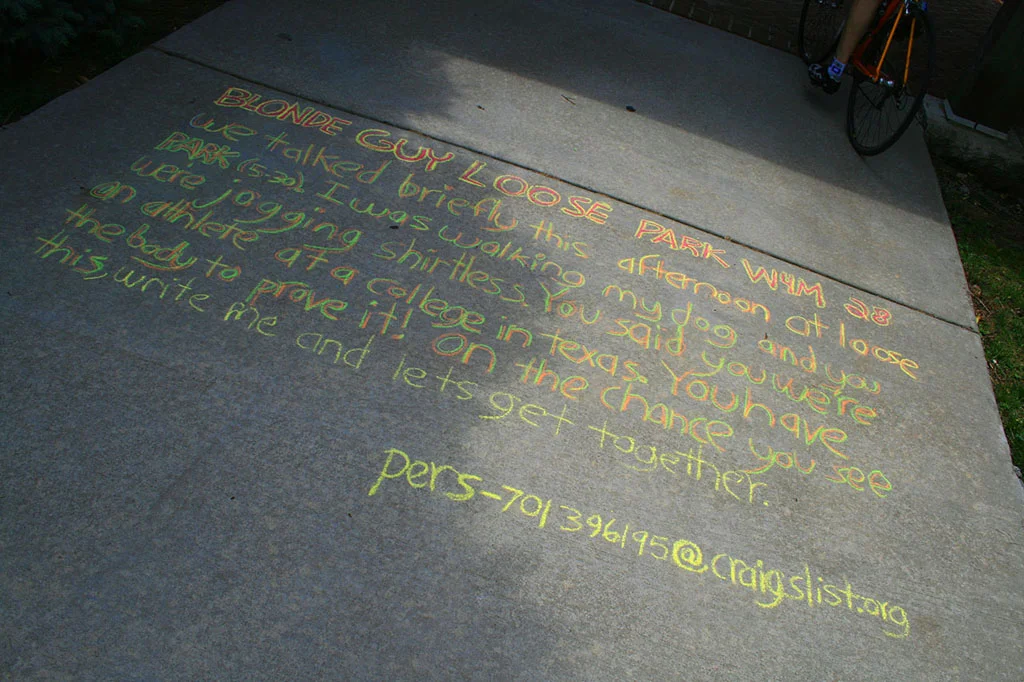 BLONDE GUY LOOSE PARK W4M 28
we talked briefly this afternoon at loose
PARK (5-30). I was walking my dog and you
were jogging shirtless. You said you we're
an athlete at a college in texas. You have
the body to prove it! On the chance you see
this, write me and lets get together.
pers-701396195@craigslist.org